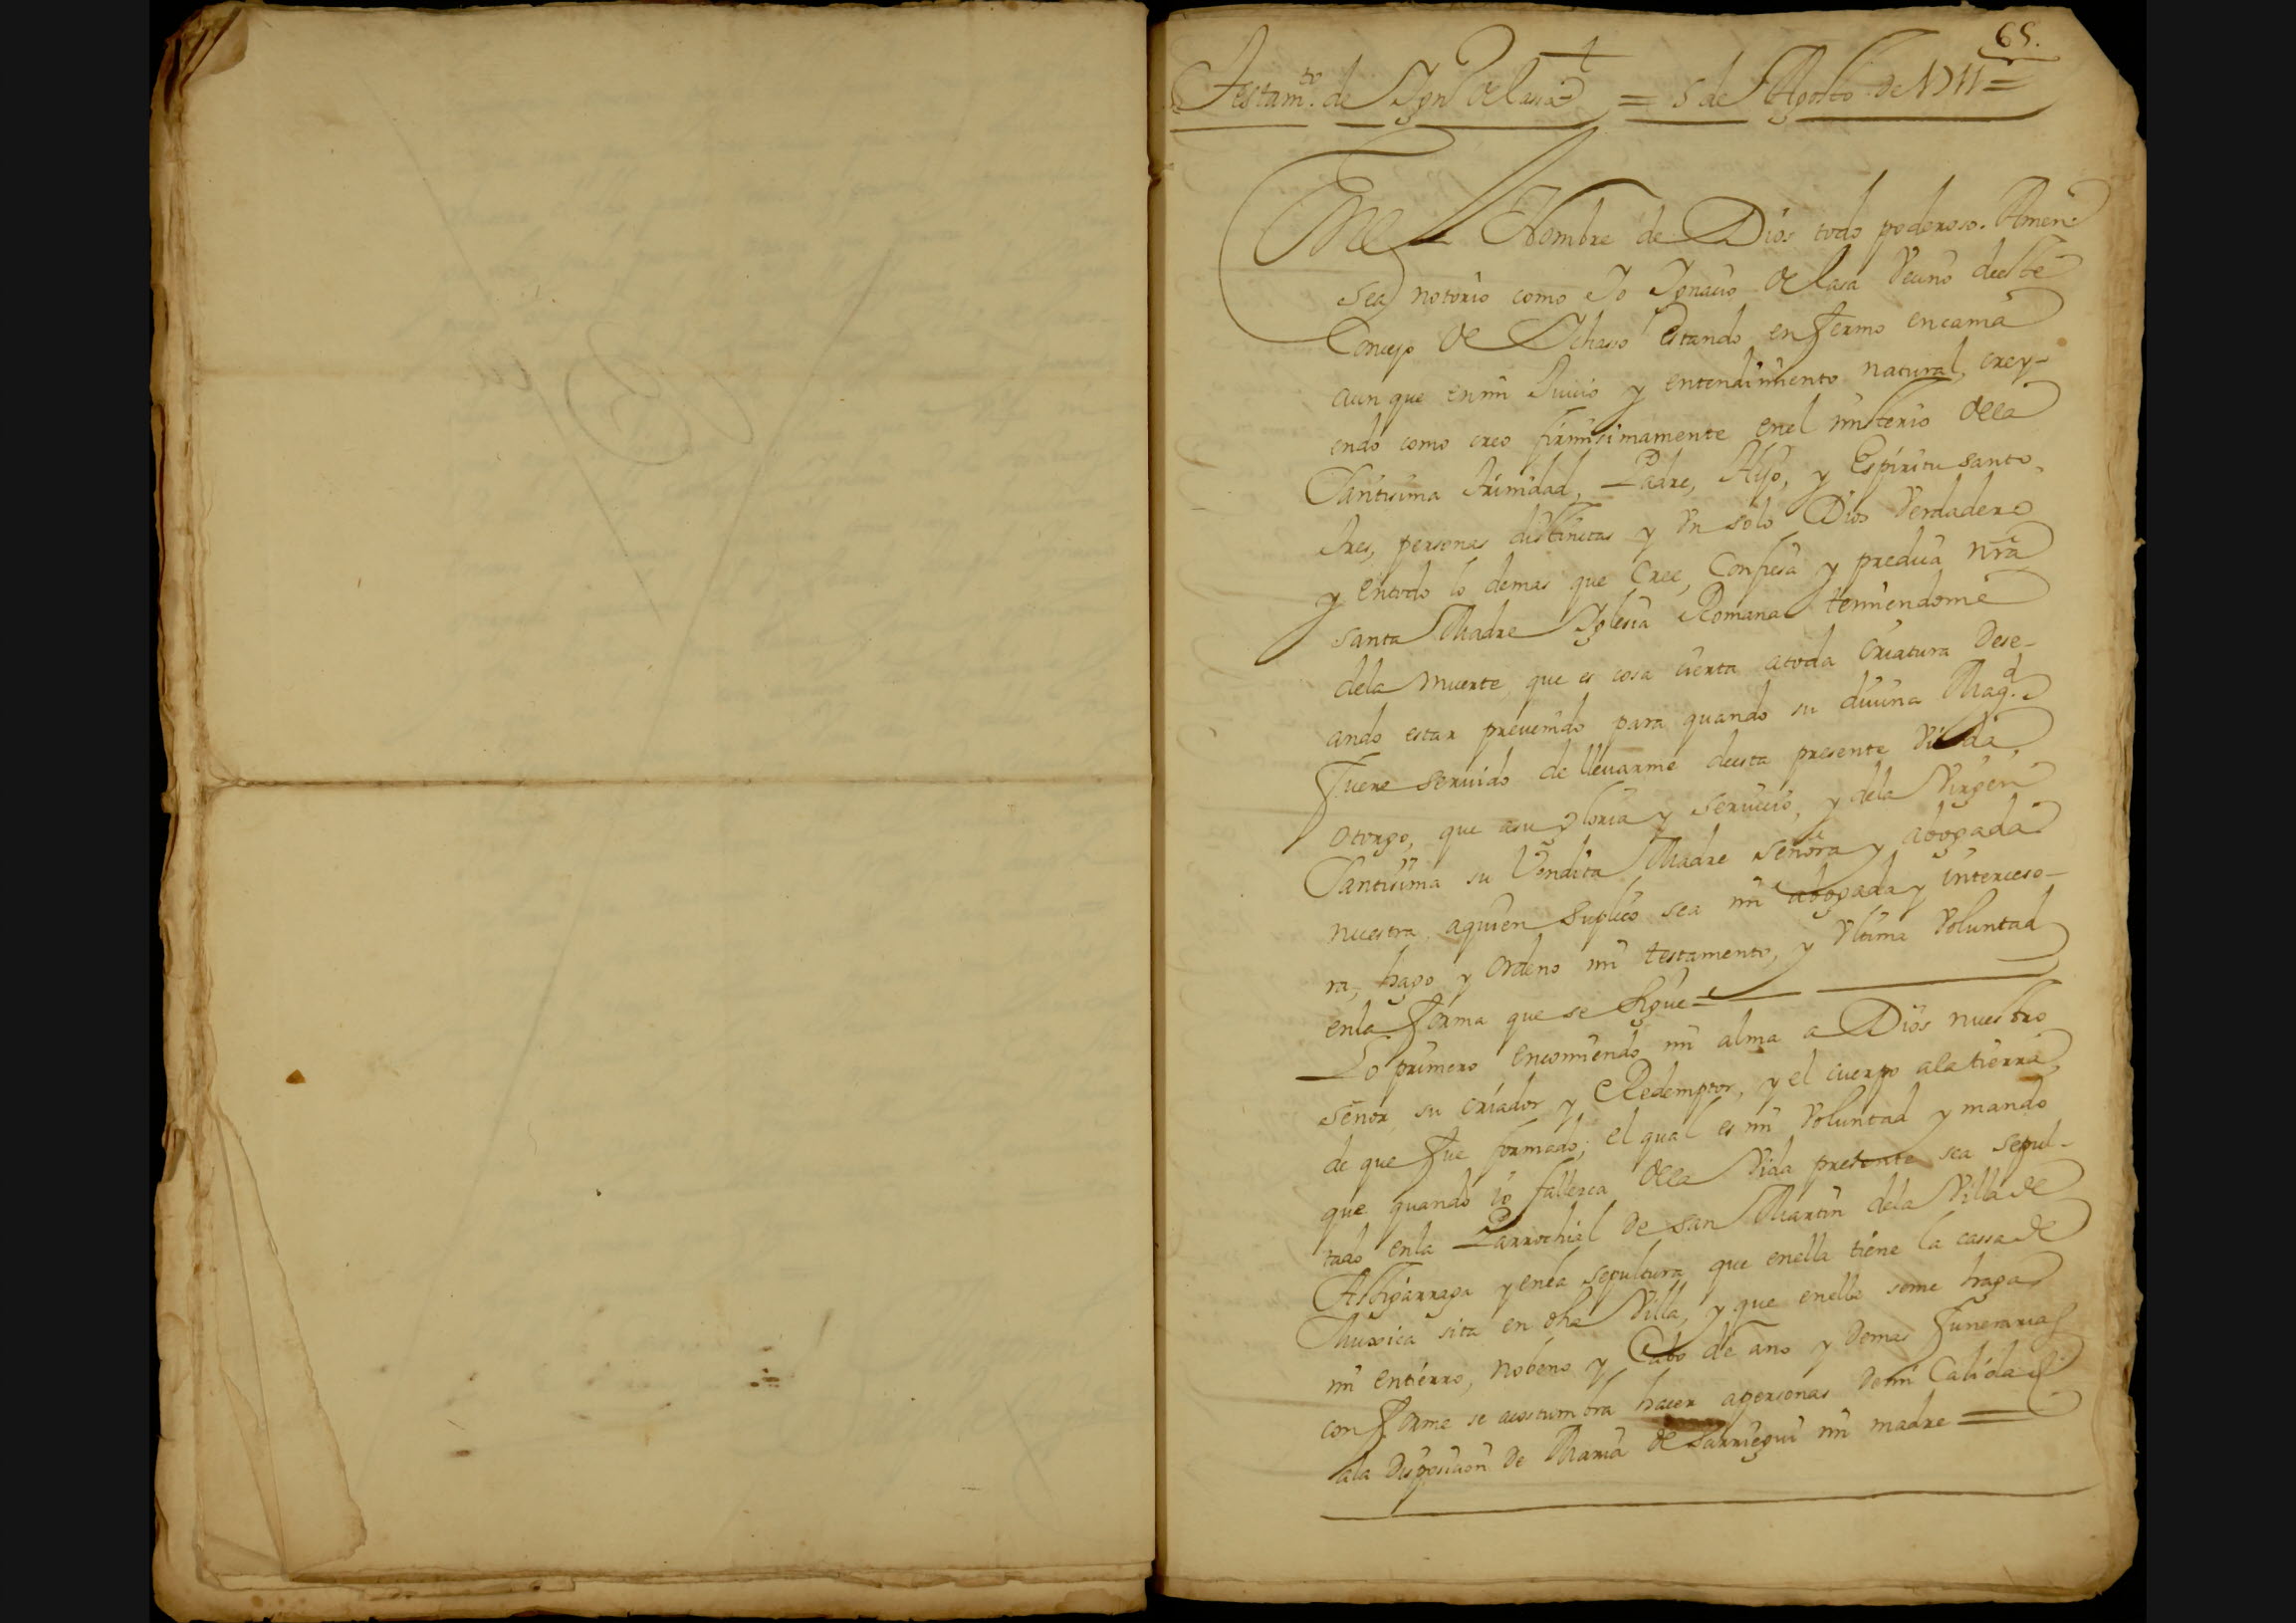 65.
Testam.to de Ygn.o de lasa = 5 de Agosto de 1711 =
En el Nombre de Dios todo poderoso. Amen
sea notorio como Yo Ygnacio de lasa Vecino deeste
Concejo de Ochasso estando enfermo encama
aunque enmi Juicio y entendimiento natural, crey-
endo como creo firmisimamente enel misterio dela
Santisima trinidad, Padre, Hijo, y Espiritu santo,
tres, personas distinctas y Un solo Dios Verdadero
y entodo lo demas que Cree, Confiesa y predica nr̃a
santa Madre Yglesia Romana temiendome
dela muerte, que es cosa cierta atoda Criatura Dese-
ando estar preuenido para quando su diuina Mag.d
fuere seruido de lleuarme deesta presente Vida,
otorgo, que asu gloria y seruicio, y dela Virgen
Santisima su Vendita Madre señora y abogada
nuestra, aquien suplico sea mi abogada y interceso-
ra, hago y Ordeno mi testamento, y Vltima Voluntad
enla forma que se sigue =
Lo primero encomiendo mi alma a Dios nuestro
señor su criador y Redemptor, y el cuerpo ala tierra,
de que fue formado; el qual es mi Voluntad y mando
que quando io fallezca dela Vida presente sea sepul-
tado enla Parrochial de san Martin dela Villa de
Astigarraga yenla sepultura que enella tiene la cassa de
Muxica sita en dha Villa, y que enella seme haga
mi entierro, nobeno y Cabo de año y demas funerarias
conforme se acostumbra hacer apersonas demi Calidad
ala Disposicion de Maria de Sarriegui mi madre =